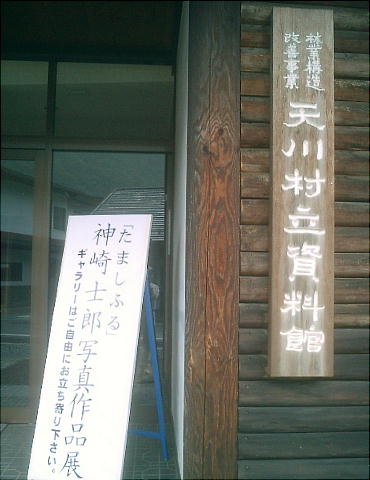 林業構造
改善事業
天川村立資料館
「たましふる」
神崎士郎写真作品展
ギャラリーはご自由にお立ち寄り下さい。